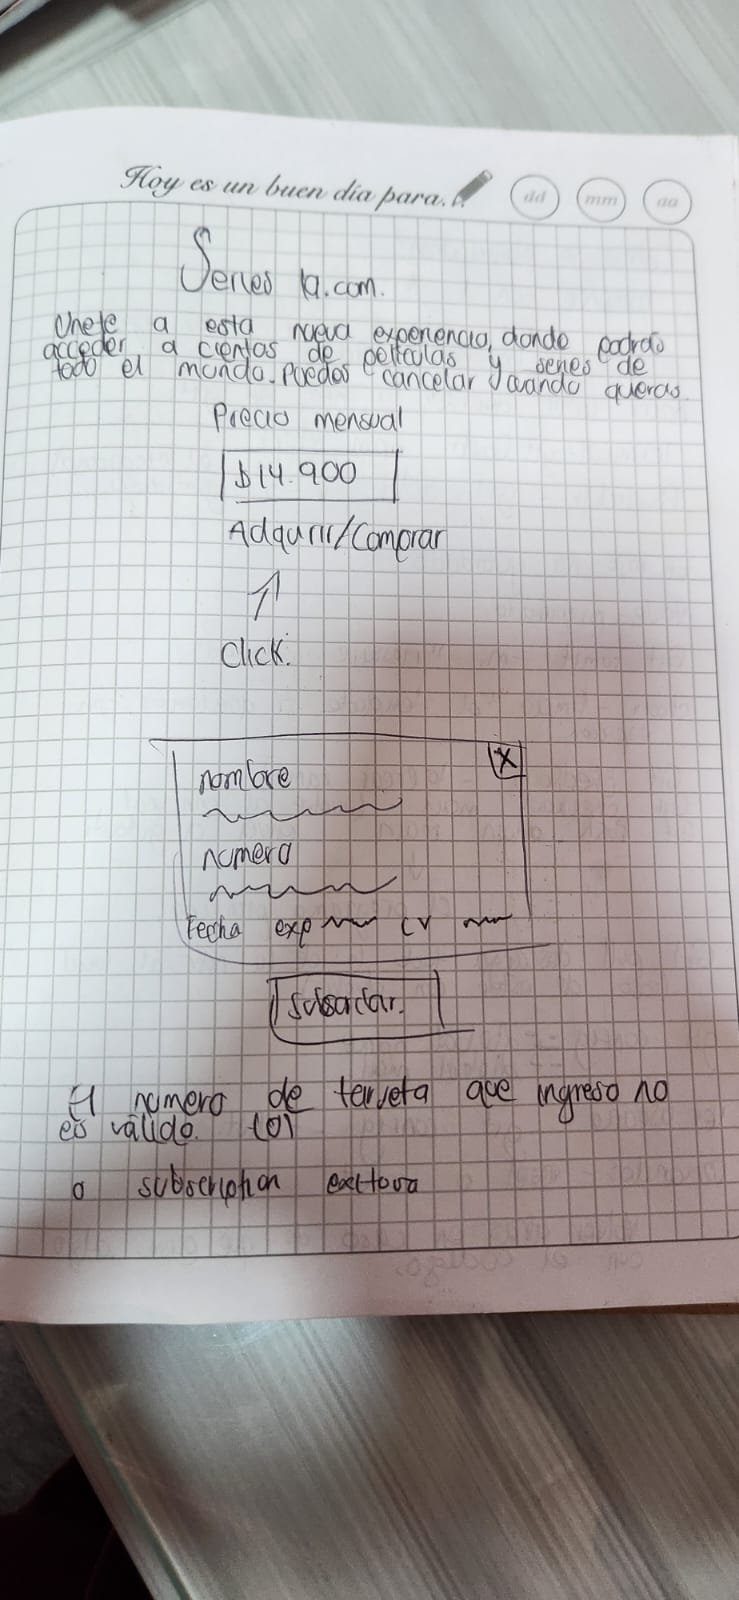 Hoy es un buen día para...
dd mm aa
Series la.com.
Unete a esta nueva experiencia, donde podrás
acceder a cientos de películas y series de
todo el mundo. Puedes cancelar cuando quieras.
Precio mensual
$14.900
Adquirir/Comprar
Click.
X
nombre
numero
Fecha exp CV
Subscribir.
El numero de tarjeta que ingreso no
es válido. (O)
o subscription exitosa